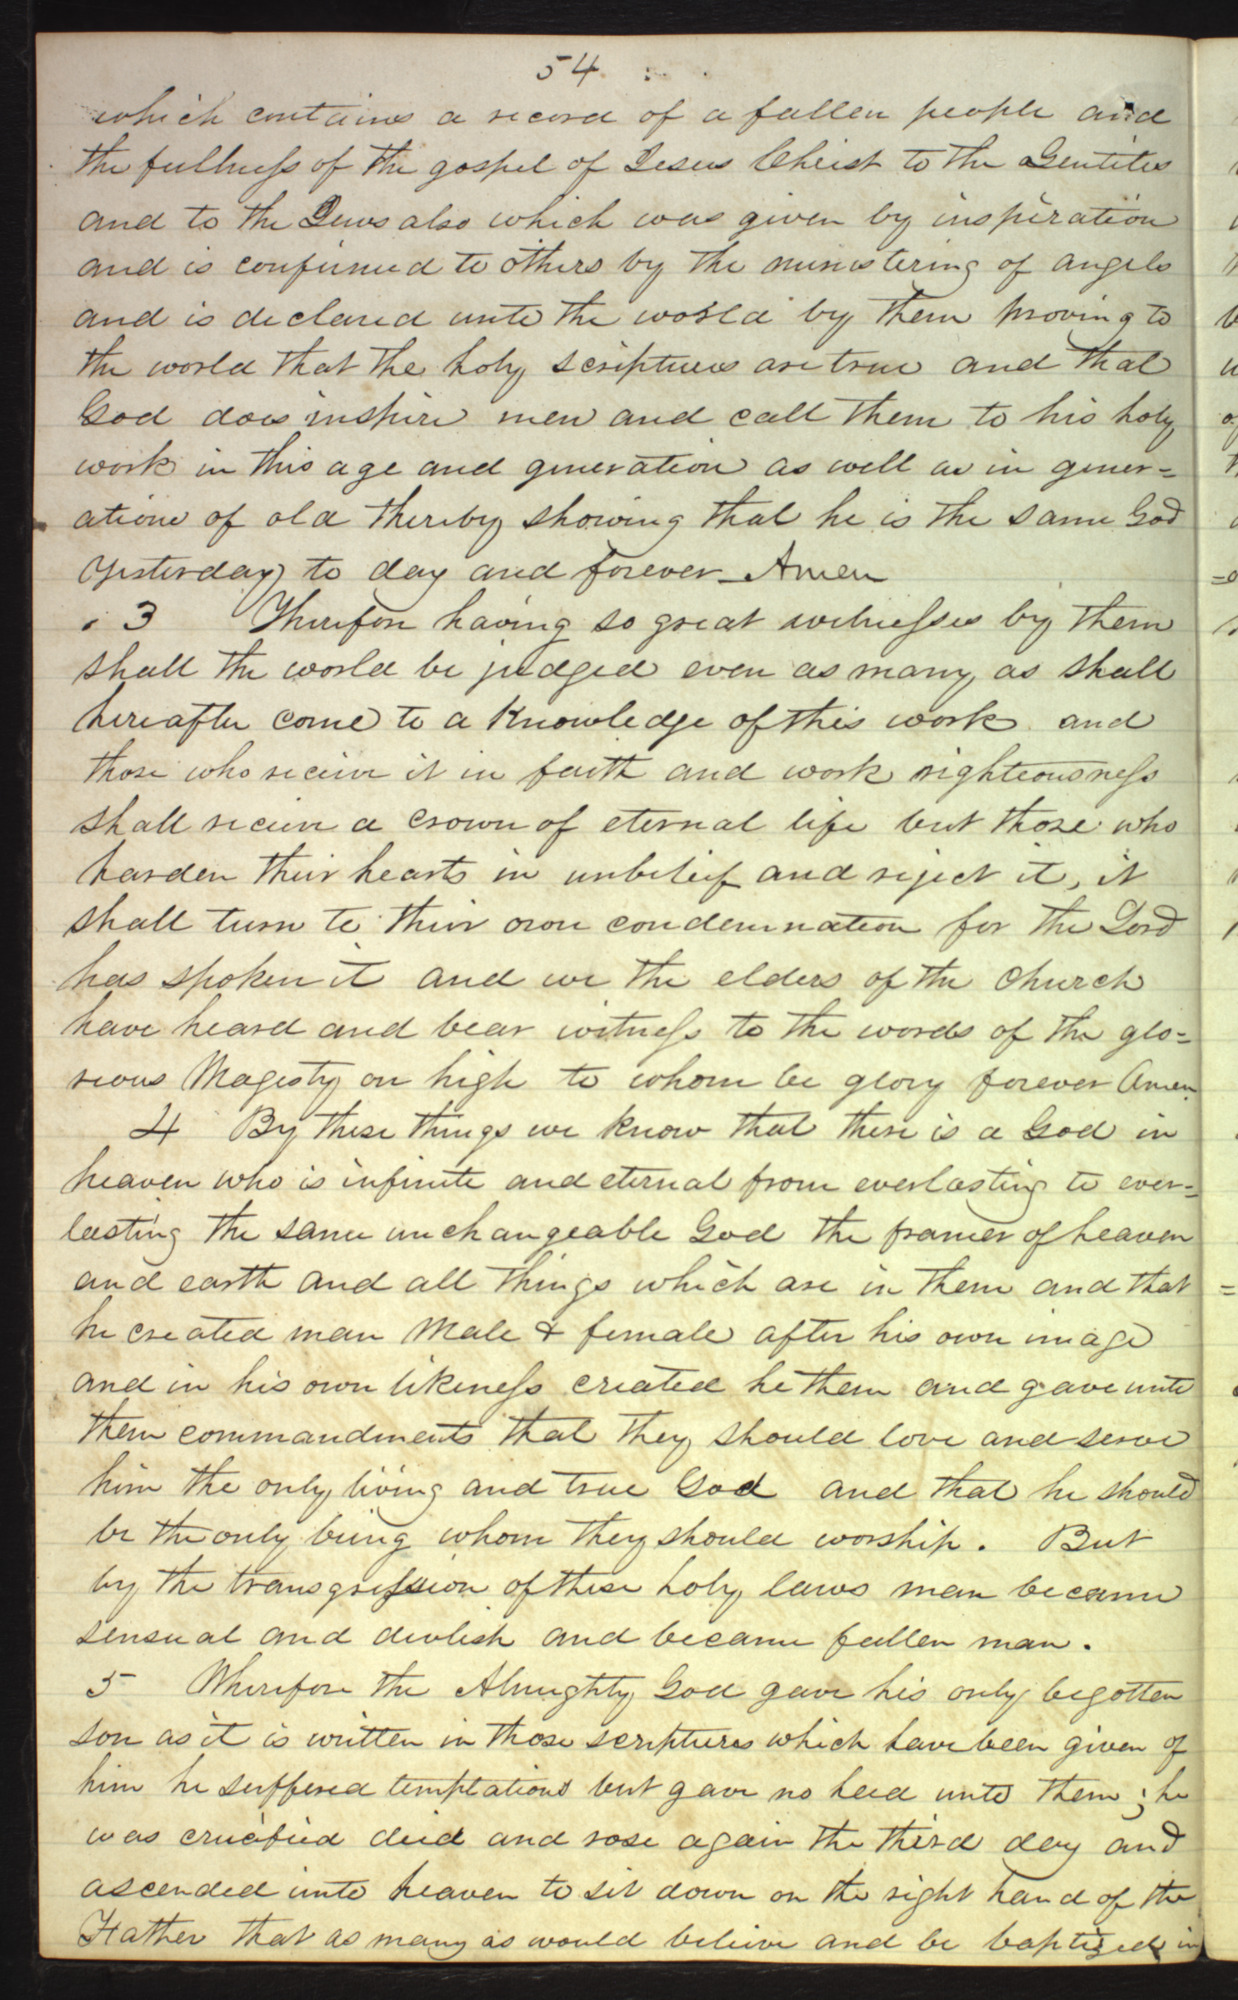 54
which contains a record of a fallen people and
the fullness of the gospel of Jesus Christ to the Gentiles
and to the Jews also which was given by inspiration
and is confirmed to others by the ministering of angels
and is declared unto the world by them proving to
the world that the holy scriptures are true and that
God does inspire men and call them to his holy
work in this age and generation as well as in gener=
ations of old thereby showing that he is the same God
yesterday to day and forever Amen
3 Therefore having so great witnesses by them
shall the world be judged even as many as shall
hereafter come to a Knowledge of this work and
those who receive it in faith and work righteousness
shall receive a crown of eternal life but those who
harden their hearts in unbelief and reject it, it
shall turn to their own condemnation for the Lord
has spoken it and we the elders of the church
have heard and bear witness to the words of the glo=
rious Magesty on high to whom be glory forever Amen.
4 By these things we know that there is a God in
heaven who is infinite and eternal from everlasting to ever=
lasting the same unchangeable God the framer of heaven
and earth and all things which are in them and that
he created man Male & female after his own image
and in his own likeness created he them and gave unto
them commandments that they should love and serve
him the only living and true God and that he should
be the only being whom they should worship. But
by the transgression of these holy laws man became
sensual and devlish and became fallen man.
5 Wherefore the Almighty God gave his only begotten
son as it is written in those scriptures which have been given of
him he suffered temptations but gave no heed unto them; he
was crucified died and rose again the third day and
ascended unto heaven to sit down on the right hand of the
Father that as many as would believe and be baptized in